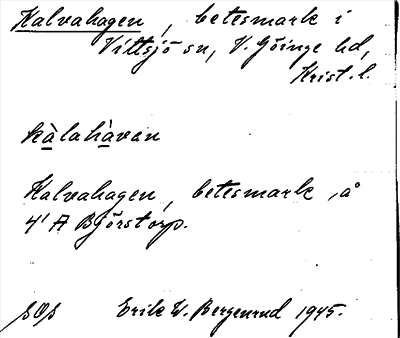 Kalvahagen, betesmark i
Vittsjö sn, V. Göinge hd,
Krist. l.
kàlahàvan
Kalvahagen, betesmark, å
4¹ A Björstorp.
SOS Erik W. Bergenrud 1945.